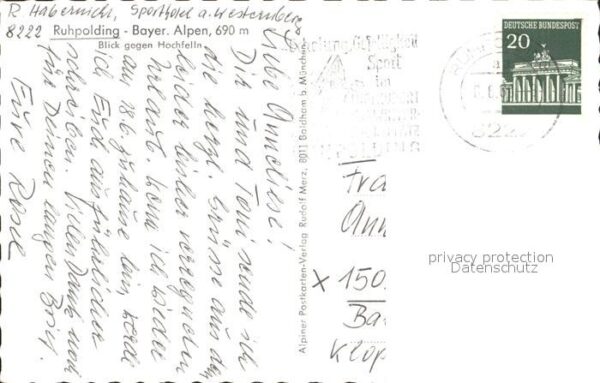 R. Habernickl, Sporthotel a. Westernberg
8222 Ruhpolding - Bayer. Alpen, 690 m
Blick gegen Hochfelln
Liebe Anneliese!
Dir und Toni sende ich
die herzl. Grüsse aus dem
leider bisher verregneten
Urlaub. Wenn ich wieder
am 28.6. zuhause bin, werde
ich Euch ausführlicher
schreiben. Vielen Dank noch
für Deinen langen Brief.
Eure Rosl
Alpiner Postkarten-Verlag Rudolf Merz, 8011 Baldham b. München
DEUTSCHE BUNDESPOST
20
Sport
a
822
Fra
Ann
x 150
Ba
Klop
privacy protection
Datenschutz